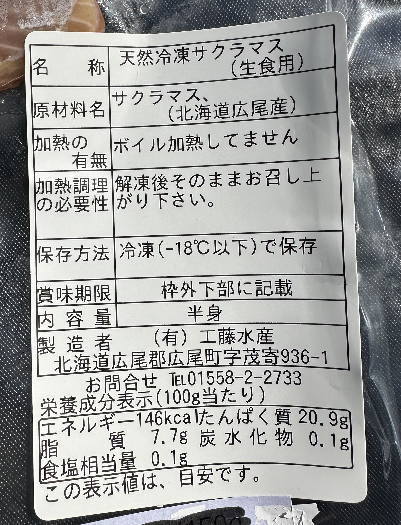 名称 天然冷凍サクラマス
(生食用)
原材料名 サクラマス、
(北海道広尾産)
加熱の有無 ボイル加熱してません
加熱調理の必要性 解凍後そのままお召し上
がり下さい。
保存方法 冷凍(-18℃以下)で保存
賞味期限 枠外下部に記載
内容量 半身
製造者 (有)工藤水産
北海道広尾郡広尾町字茂寄936-1
お問合せ ℡01558-2-2733
栄養成分表示(100g当たり)
エネルギー146kcalたんぱく質20.9g
脂質 7.7g 炭水化物 0.1g
食塩相当量 0.1g
この表示値は、目安です。